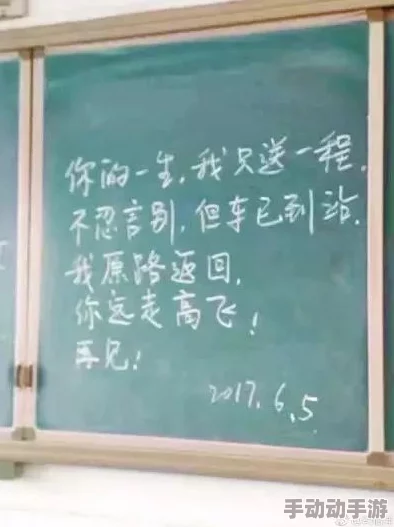 你的一生，我只送一程，
不忍言别，但车已到站，
我原路返回，
你远走高飞！
再见！
2017.6.5
手动动手游